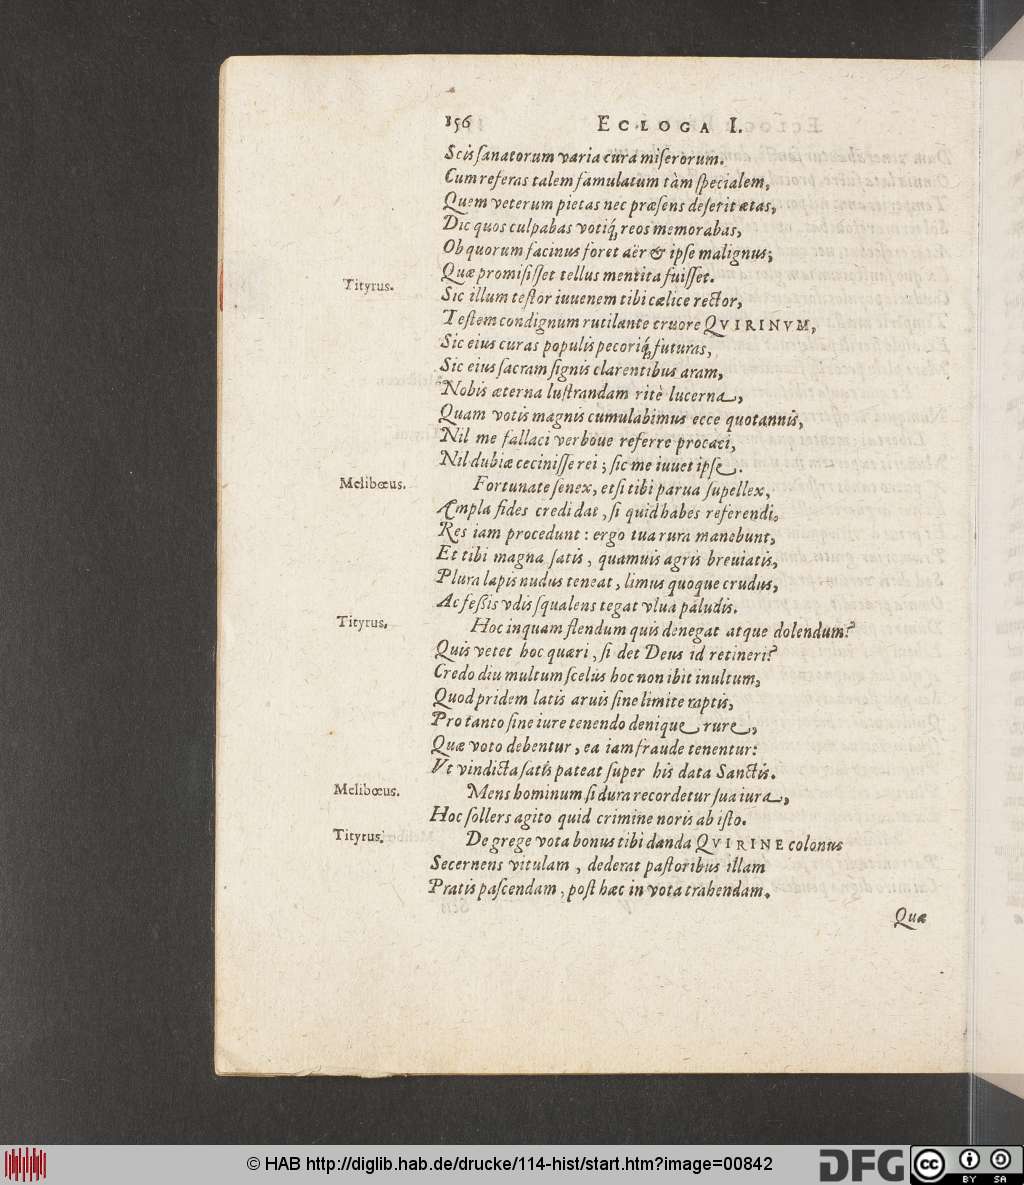 156 ECLOGA I.
Scis sanatorum varia cura miserorum.
Cum referas talem famulatum tàm specialem,
Quem veterum pietas nec præsens deserit ætas,
Dic quos culpabas votiq́; reos memorabas,
Ob quorum facinus foret aër & ipse malignus;
Quæ promisisset tellus mentita fuisset.
Tityrus. Sic illum testor iuuenem tibi cælice rector,
Testem condignum rutilante cruore QVIRINVM,
Sic eius curas populis pecoriq́; futuras,
Sic eius sacram signis clarentibus aram,
Nobis æterna lustrandam ritè lucerna,
Quam votis magnis cumulabimus ecce quotannis,
Nil me fallaci verboue referre procaci,
Nil dubiæ cecinisse rei; sic me iuuet ipse.
Melibœus. Fortunate senex, etsi tibi parua supellex,
Ampla fides credi dat, si quid habes referendi.
Res iam procedunt: ergo tua rura manebunt,
Et tibi magna satis, quamuis agris breuiatis,
Plura lapis nudus teneat, limus quoque crudus,
Ac fessis vdis squalens tegat vlua paludis.
Tityrus. Hoc inquam flendum quis denegat atque dolendum?
Quis vetet hoc quæri, si det Deus id retineri?
Credo diu multum scelus hoc non ibit inultum,
Quod pridem latis aruis sine limite raptis,
Pro tanto sine iure tenendo denique rure,
Quæ voto debentur, ea iam fraude tenentur:
Vt vindicta satis pateat super his data Sanctis.
Melibœus. Mens hominum si dura recordetur sua iura,
Hoc sollers agito quid crimine noris ab isto.
Tityrus. De grege vota bonus tibi danda QVIRINE colonus
Secernens vitulam, dederat pastoribus illam
Pratis pascendam, post hæc in vota trahendam.
Quæ
© HAB http://diglib.hab.de/drucke/114-hist/start.htm?image=00842
DFG
cc BY SA